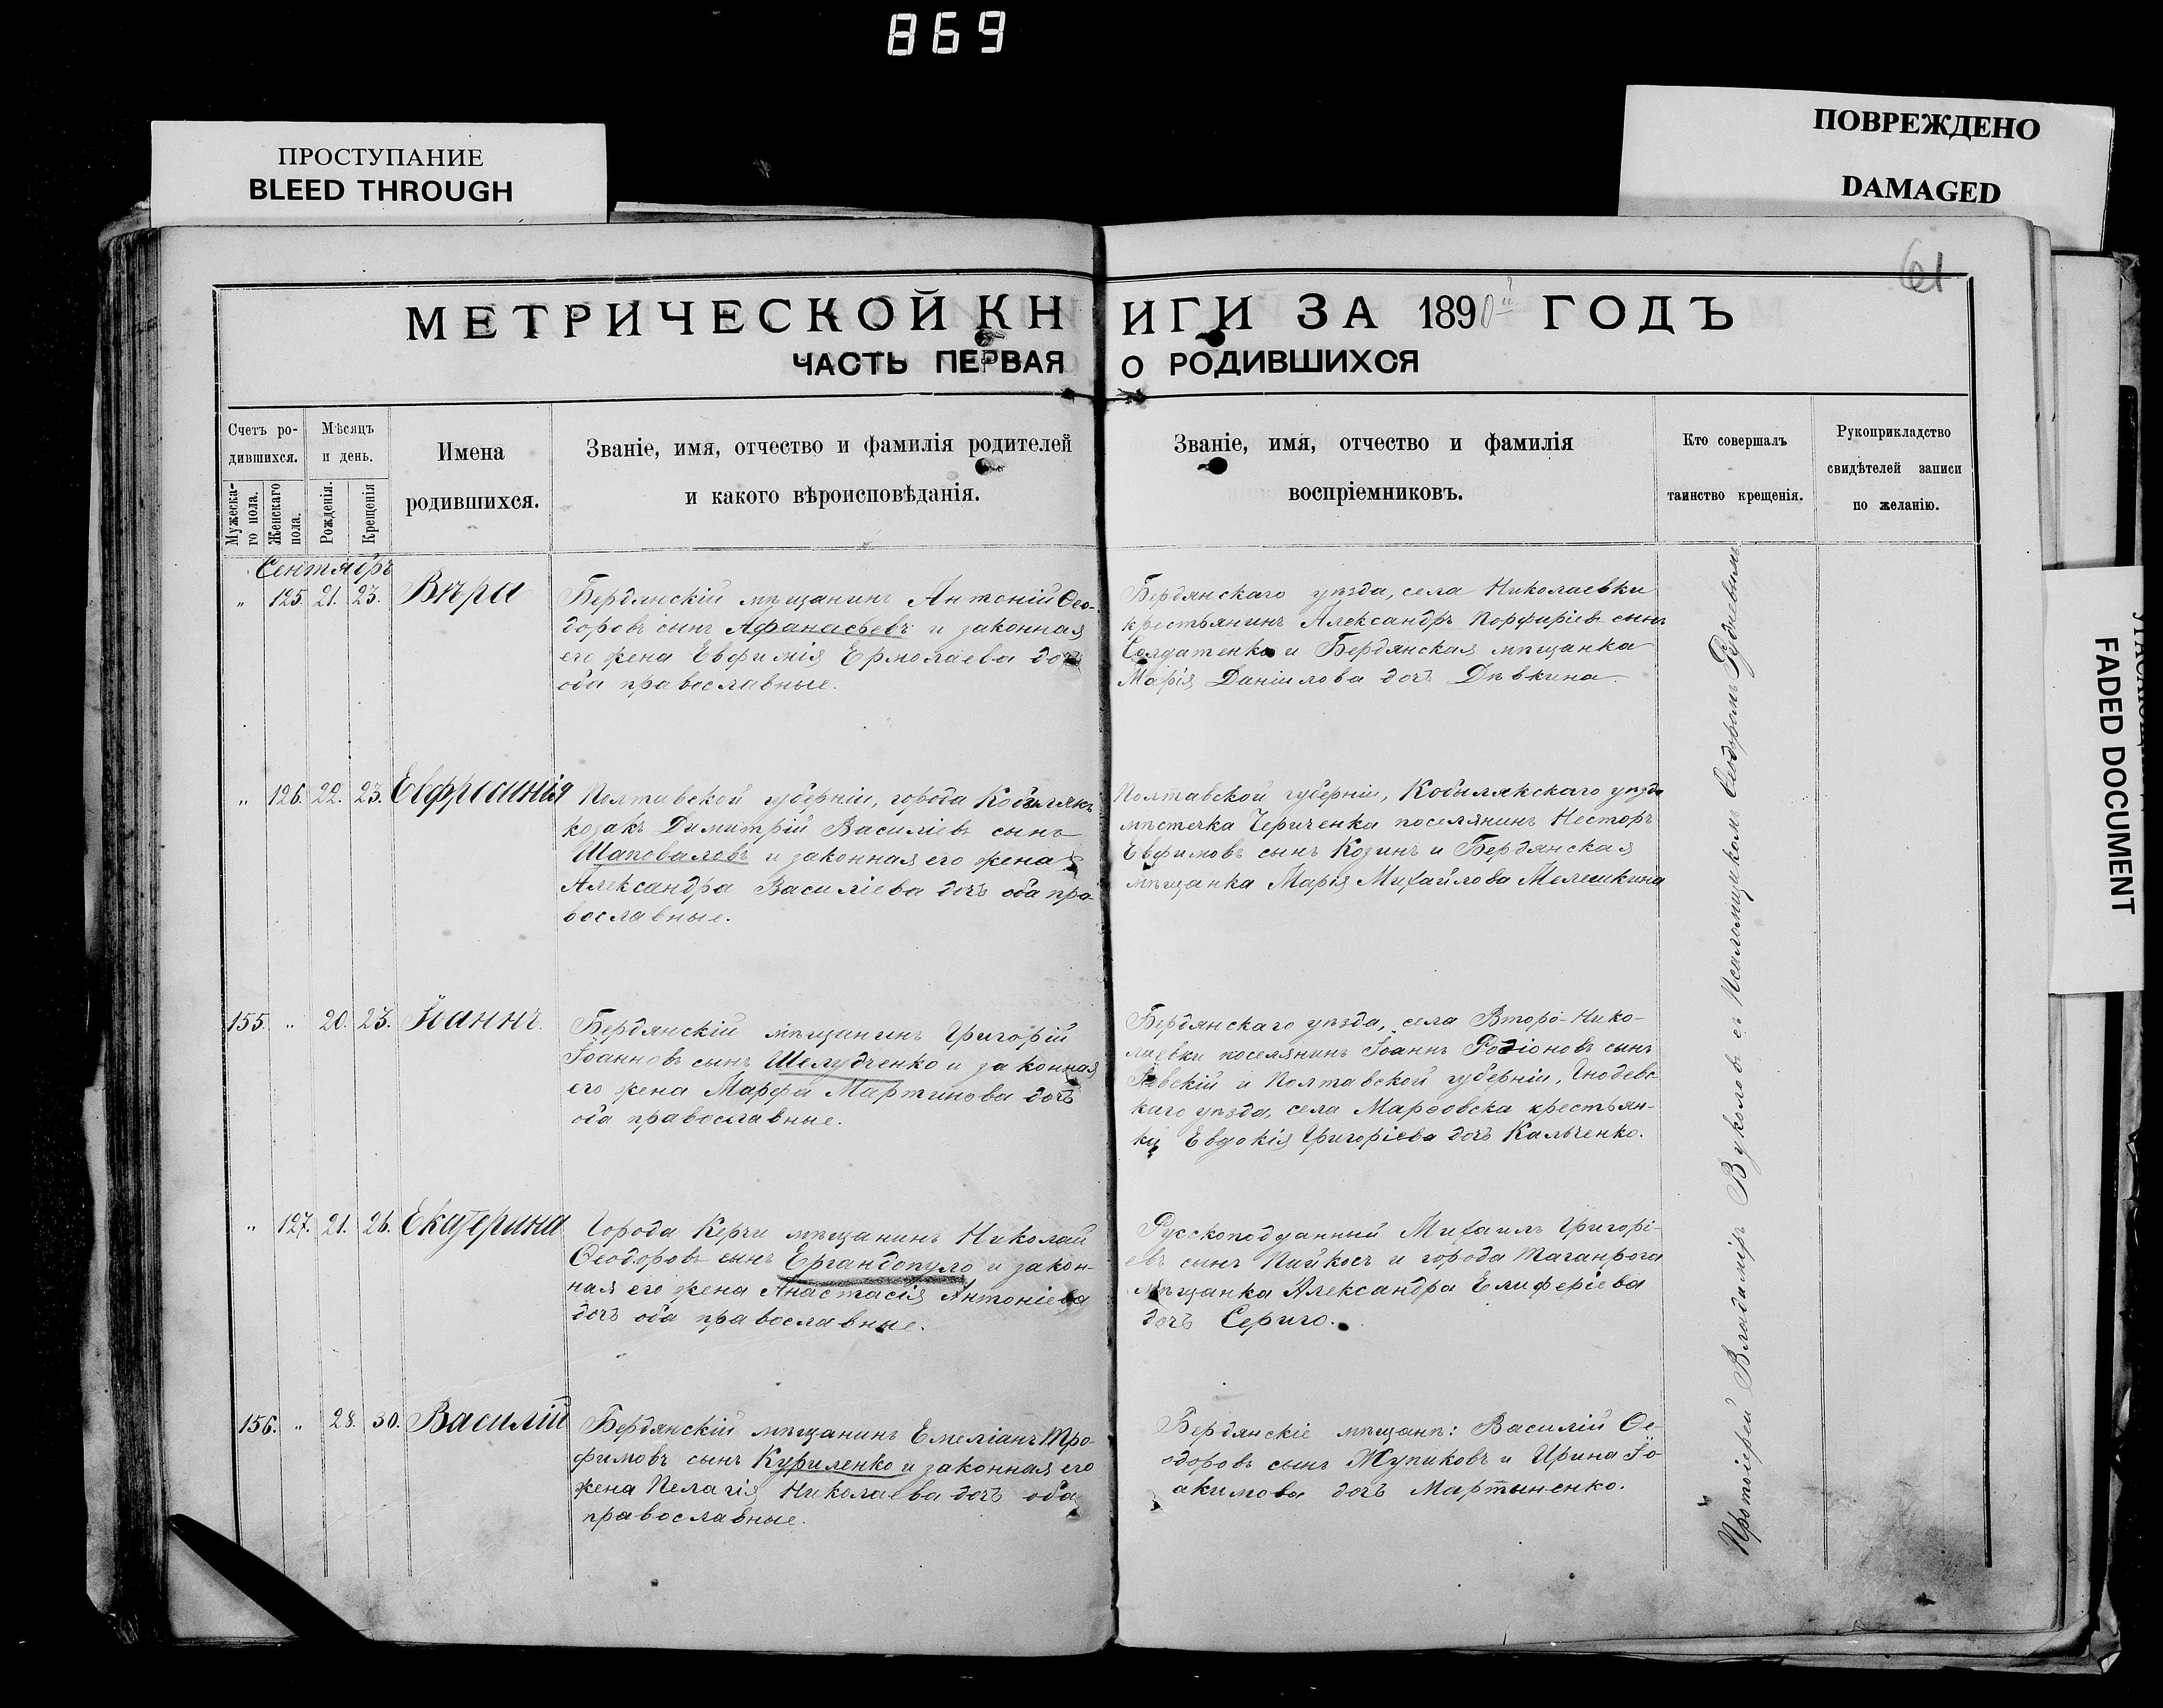 869
ПРОСТУПАНИЕ
BLEED THROUGH
ПОВРЕЖДЕНО
DAMAGED
FADED DOCUMENT
61
МЕТРИЧЕСКОЙ КНИГИ ЗА 1890й ГОДЪ
ЧАСТЬ ПЕРВАЯ О РОДИВШИХСЯ
Счетъ ро-
дившихся.
Мужеска-
го пола.
Женскаго
пола.
Мѣсяцъ
и день.
Рожденія.
Крещенія
Имена
родившихся.
Званіе, имя, отчество и фамилія родителей
и какого вѣроисповѣданія.
Званіе, имя, отчество и фамилія
воспріемниковъ.
Кто совершалъ
таинство крещенія.
Рукоприкладство
свидѣтелей записи
по желанію.
Сентябрь
„ 125. 21. 23. Вѣра
Бердянскій мѣщанинъ Антоній Ѳео-
доровъ сынъ Афанасьевъ и законная
его жена Евфимія Ермолаева дочь
оба православные.
Бердянскаго уѣзда, села Николаевки
крестьянинъ Александръ Порфиріевъ сынъ
Солдатенко и Бердянская мѣщанка
Марія Даніилова дочь Дѣвкина.
„ 126. 22. 23. Евфросинія
Полтавской губерніи, города Кобылякъ
козакъ Димитрій Василіевъ сынъ
Шаповаловъ и законная его жена
Александра Василіева дочь оба пра-
вославные.
Полтавской губерніи, Кобылякскаго уѣзда
мѣстечка поселянинъ Несторъ
Евфимовъ сынъ Козинъ и Бердянская
мѣщанка Марія Михайлова Мелешкина
155. „ 20. 23. Іоаннъ.
Бердянскій мѣщанинъ Григорій
Іоанновъ сынъ Шелудченко и законная
его жена Марфа Мартинова дочь
оба православные.
Бердянскаго уѣзда, села Второ-Нико-
лаевки поселянинъ Іоаннъ Родіоновъ сынъ
и Полтавской губерніи,
каго уѣзда, села крестьян-
ка Евдокія Григоріева дочь Кальченко.
„ 127. 21. 26. Екатерина
Города Керчи мѣщанинъ Николай
Ѳеодоровъ сынъ Ергандопуло и закон-
ная его жена Анастасія Антоніева
дочь оба православные.
Русскоподданный Михаилъ Григорі-
евъ сынъ и города Таганрога
мѣщанка Александра Елиферіева
дочь Сериго.
156. „ 28. 30. Василій
Бердянскій мѣщанинъ Емеліанъ Тро-
фимовъ сынъ Куриленко и законная его
жена Пелагія Николаева дочь оба
православные.
Бердянскіе мѣщане: Василій Ѳе-
одоровъ сынъ Жупиковъ и Ирина Іо-
акимова дочь Мартыненко.
Протоіерей Владиміръ Вуколовъ съ Псаломщикомъ Ѳеодоромъ Рудневымъ